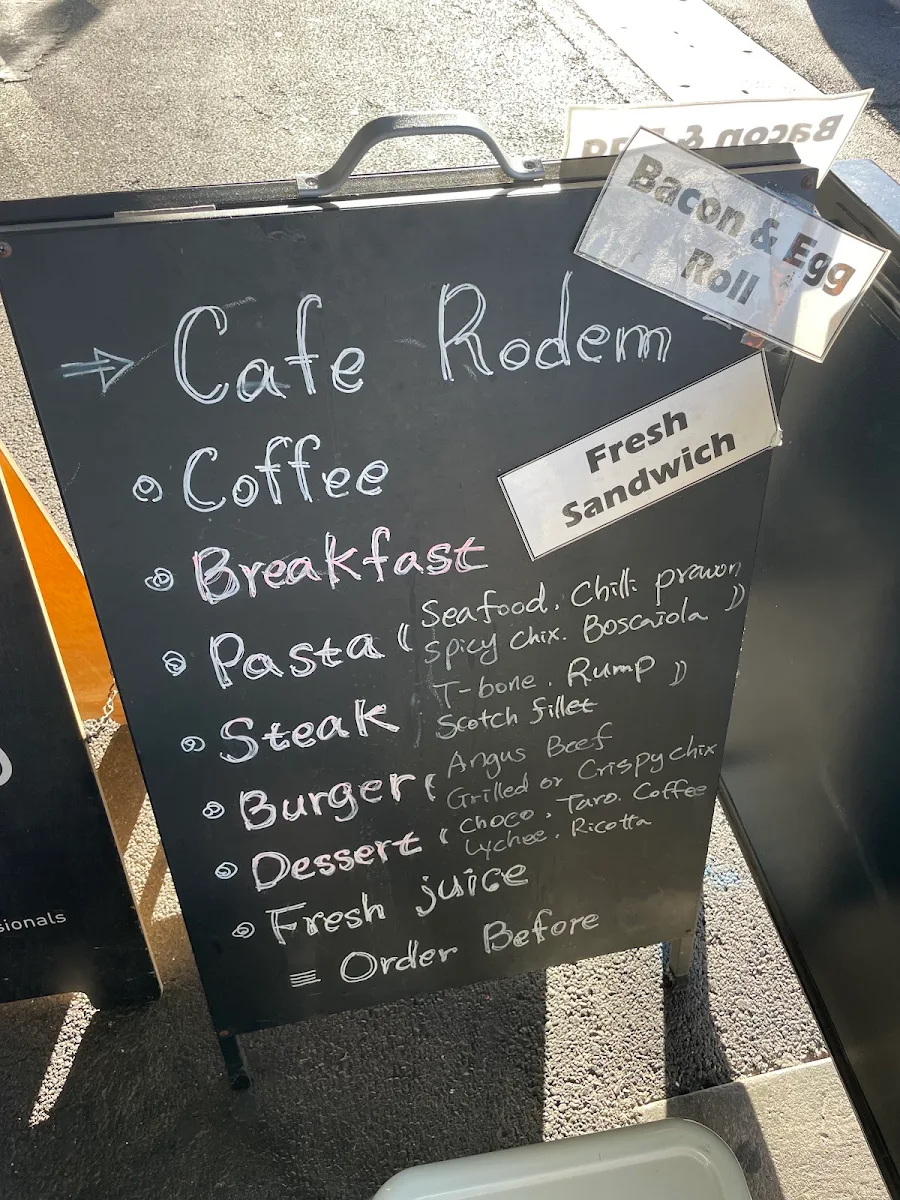 Bacon & Egg
Bacon & Egg
Roll
→ Cafe Rodem
Fresh
Sandwich
Coffee
Breakfast
Pasta (Seafood. Chilli prawn
Spicy Chix. Boscaiola)
Steak (T-bone. Rump)
Scotch fillet
Burger (Angus Beef
Grilled or Crispy chix
Dessert (Choco. Taro. Coffee
Lychee. Ricotta
Fresh juice
Order Before
sionals